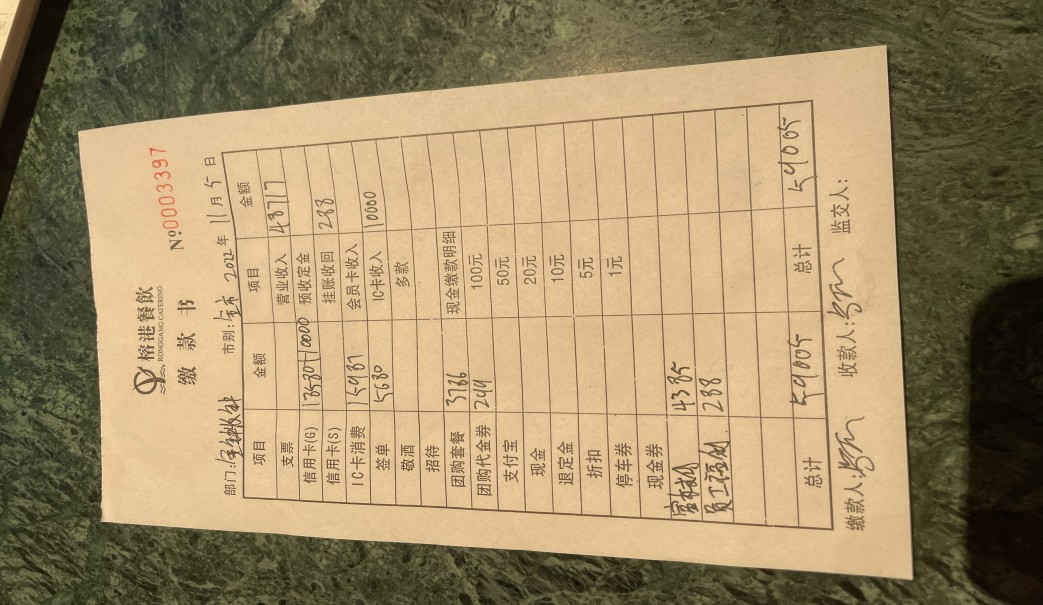 榕港餐饮
RONGGANG CATERING
缴款书 №0003397
部门: 市别:全市 2022年11月5日
项目 金额 项目 金额
支票 营业收入 43717
信用卡(G) 10000 预收定金
信用卡(S) 挂账收回 288
IC卡消费 会员卡收入
签单 5630 IC卡收入 10000
敬酒 多款
招待
团购套餐 3786 现金缴款明细
团购代金券 100元
支付宝 50元
现金 20元
退定金 10元
折扣 5元
停车券 1元
现金券
4385
员工 288
总计 54005 总计 54005
缴款人: 收款人: 监交人: